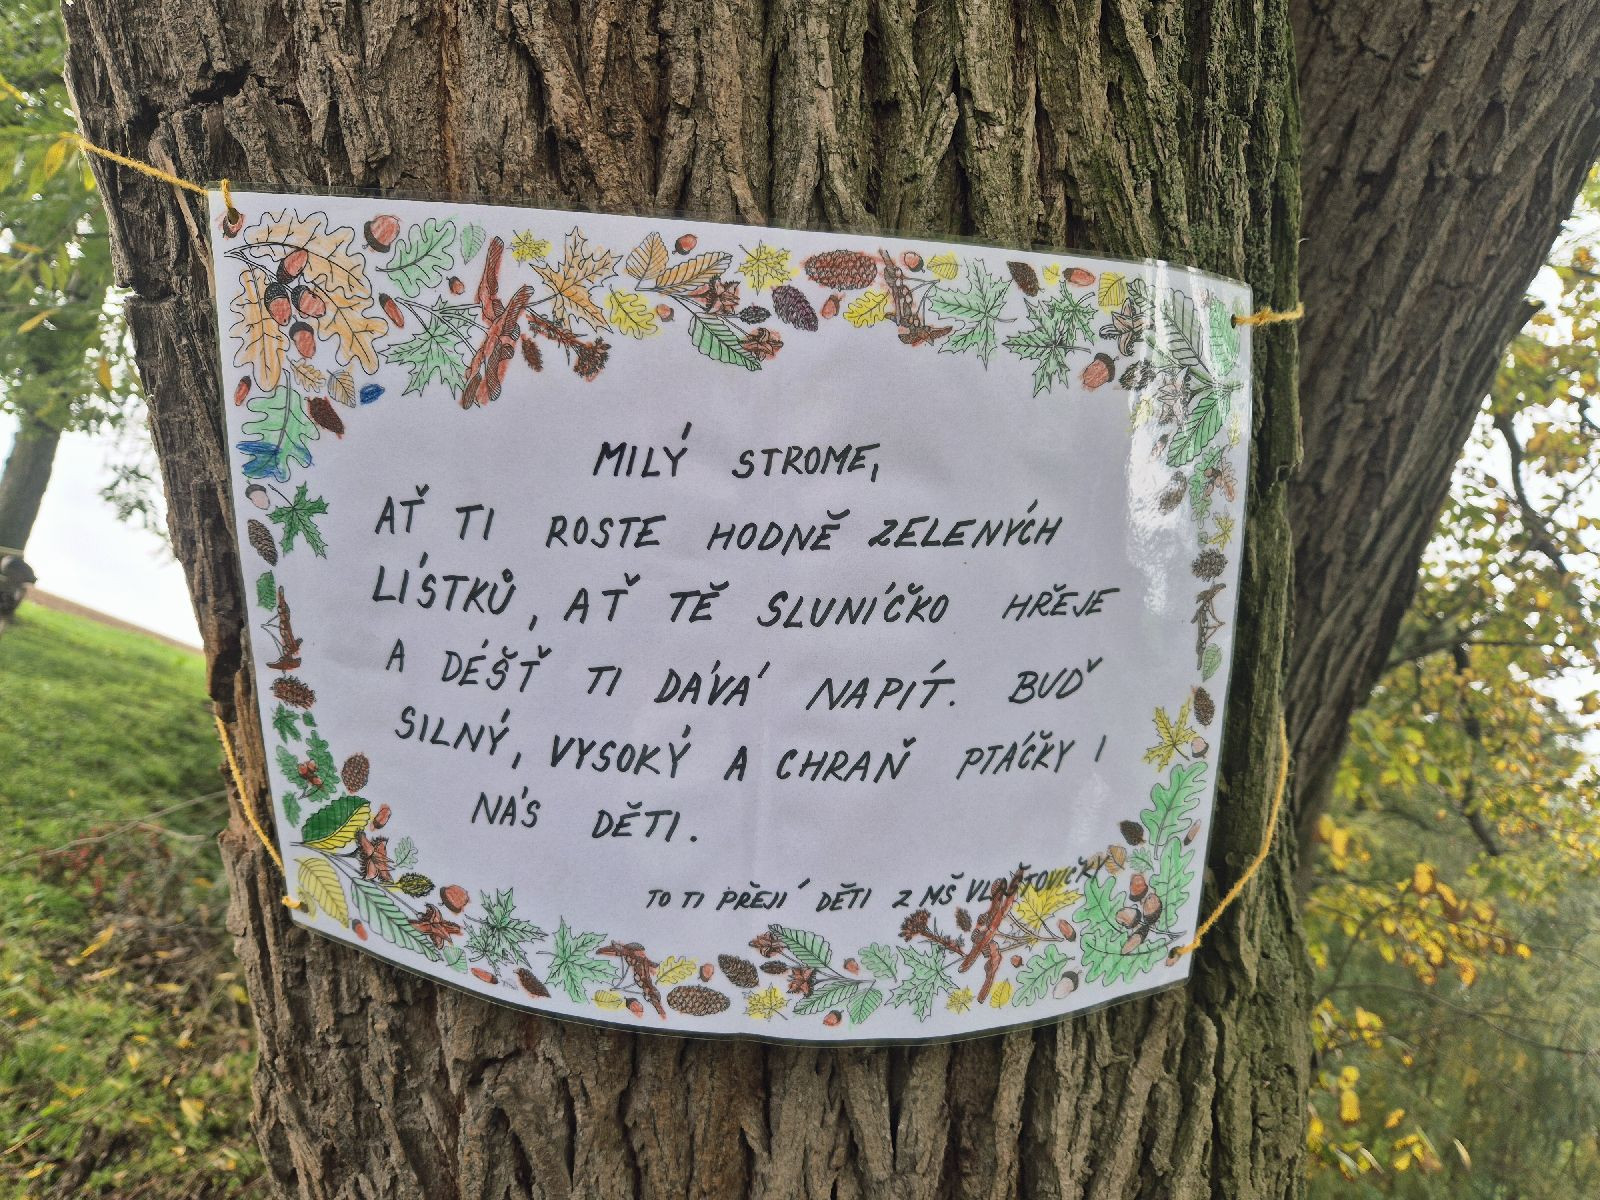 MILÝ STROME,
AŤ TI ROSTE HODNĚ ZELENÝCH
LÍSTKŮ, AŤ TĚ SLUNÍČKO HŘEJE
A DÉŠŤ TI DÁVÁ NAPÍT. BUĎ
SILNÝ, VYSOKÝ A CHRAŇ PTÁČKY I
NÁS DĚTI.
TO TI PŘEJÍ DĚTI Z MŠ VLAŠTOVIČKY